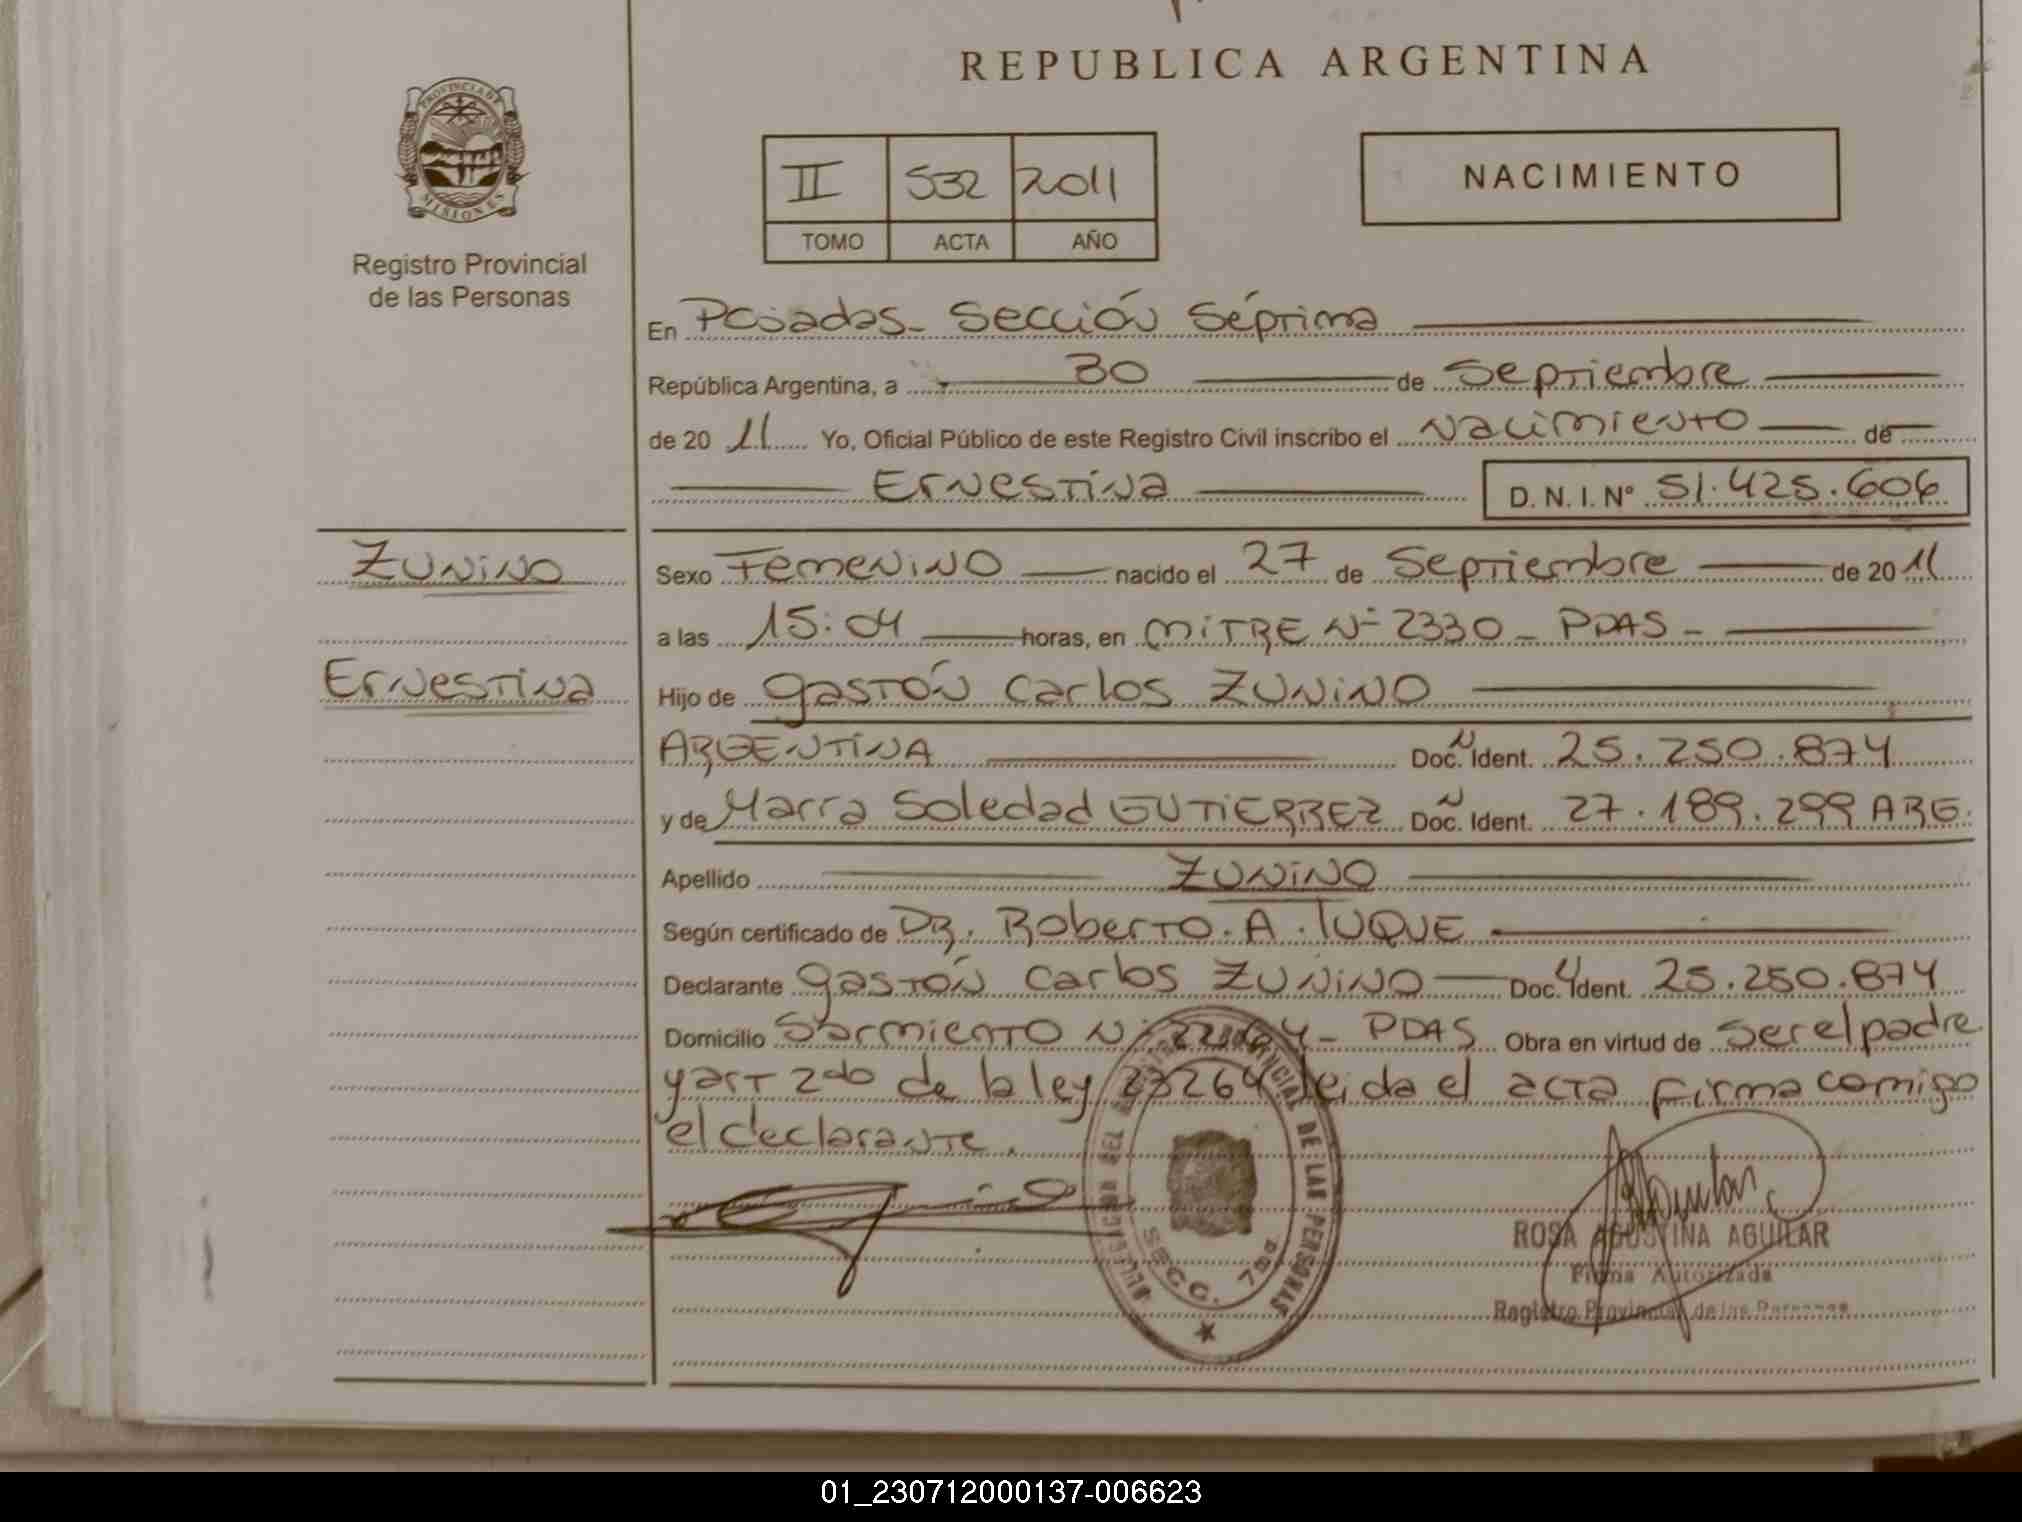 REPUBLICA ARGENTINA
PROVINCIA DE
MISIONES
Registro Provincial
de las Personas
II 532 2011
TOMO ACTA AÑO
NACIMIENTO
En Posadas - Sección Séptima
República Argentina, a 30 de Septiembre
de 20 11 Yo, Oficial Público de este Registro Civil inscribo el Nacimiento de
Ernestina D. N. I. Nº 51.425.606
ZUNINO
Ernestina
Sexo Femenino nacido el 27 de Septiembre de 20 11
a las 15:04 horas, en MITRE Nº 2330 - PDAS -
Hijo de Gastón Carlos ZUNINO
ARGENTINA Doc. Ident. 25.250.874
y de María Soledad GUTIERREZ Doc. Ident. 27.189.299 ARG.
Apellido ZUNINO
Según certificado de DR. Roberto. A. LUQUE
Declarante Gastón Carlos ZUNINO Doc. Ident. 25.250.874
Domicilio Sarmiento Nº - PDAS Obra en virtud de ser el padre
y art 2do de la ley 23264 leida el acta firma comigo
el declarante.
DELEGACION DEL REGISTRO PROVINCIAL DE LAS PERSONAS
SECC. 7ma
ROSA AGUSTINA AGUILAR
Firma Autorizada
Registro Provincial de las Personas
01_230712000137-006623